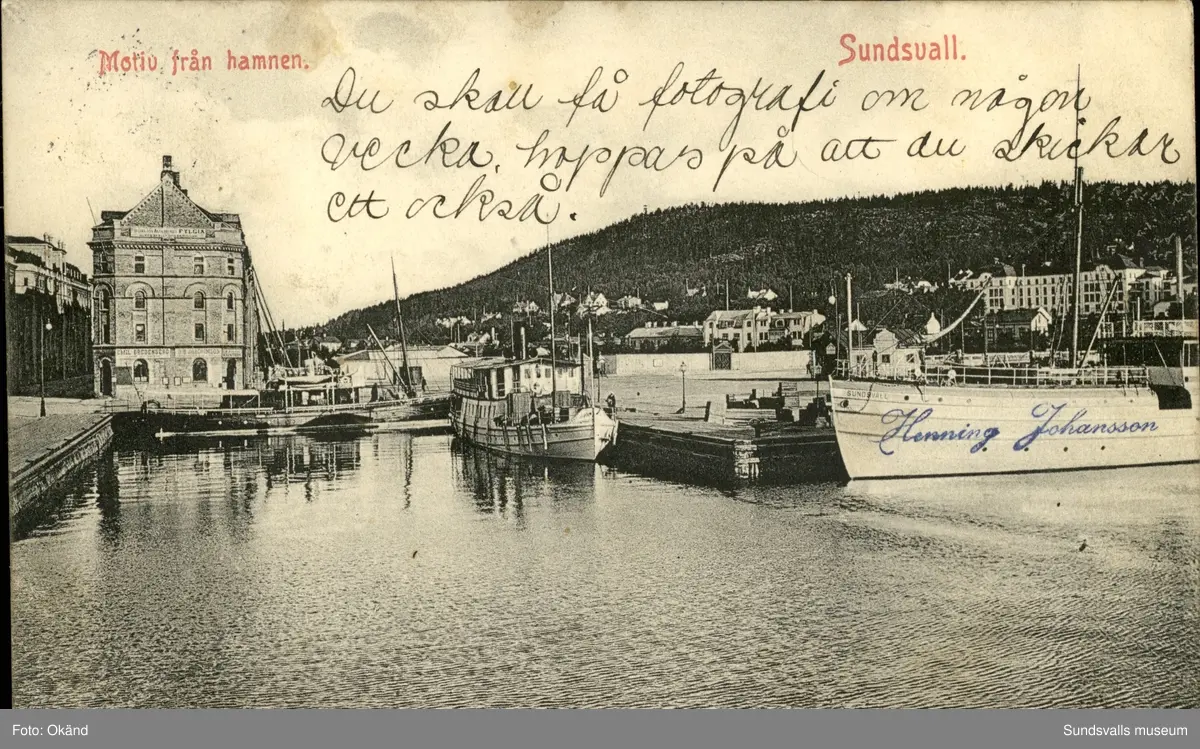 Motiv från hamnen.
Sundsvall.
Du skall få fotografi om någon
vecka, hoppas på att du skickar
ett också.
FYLGIA
SUNDSVALL
Henning Johansson
Foto: Okänd
Sundsvalls museum